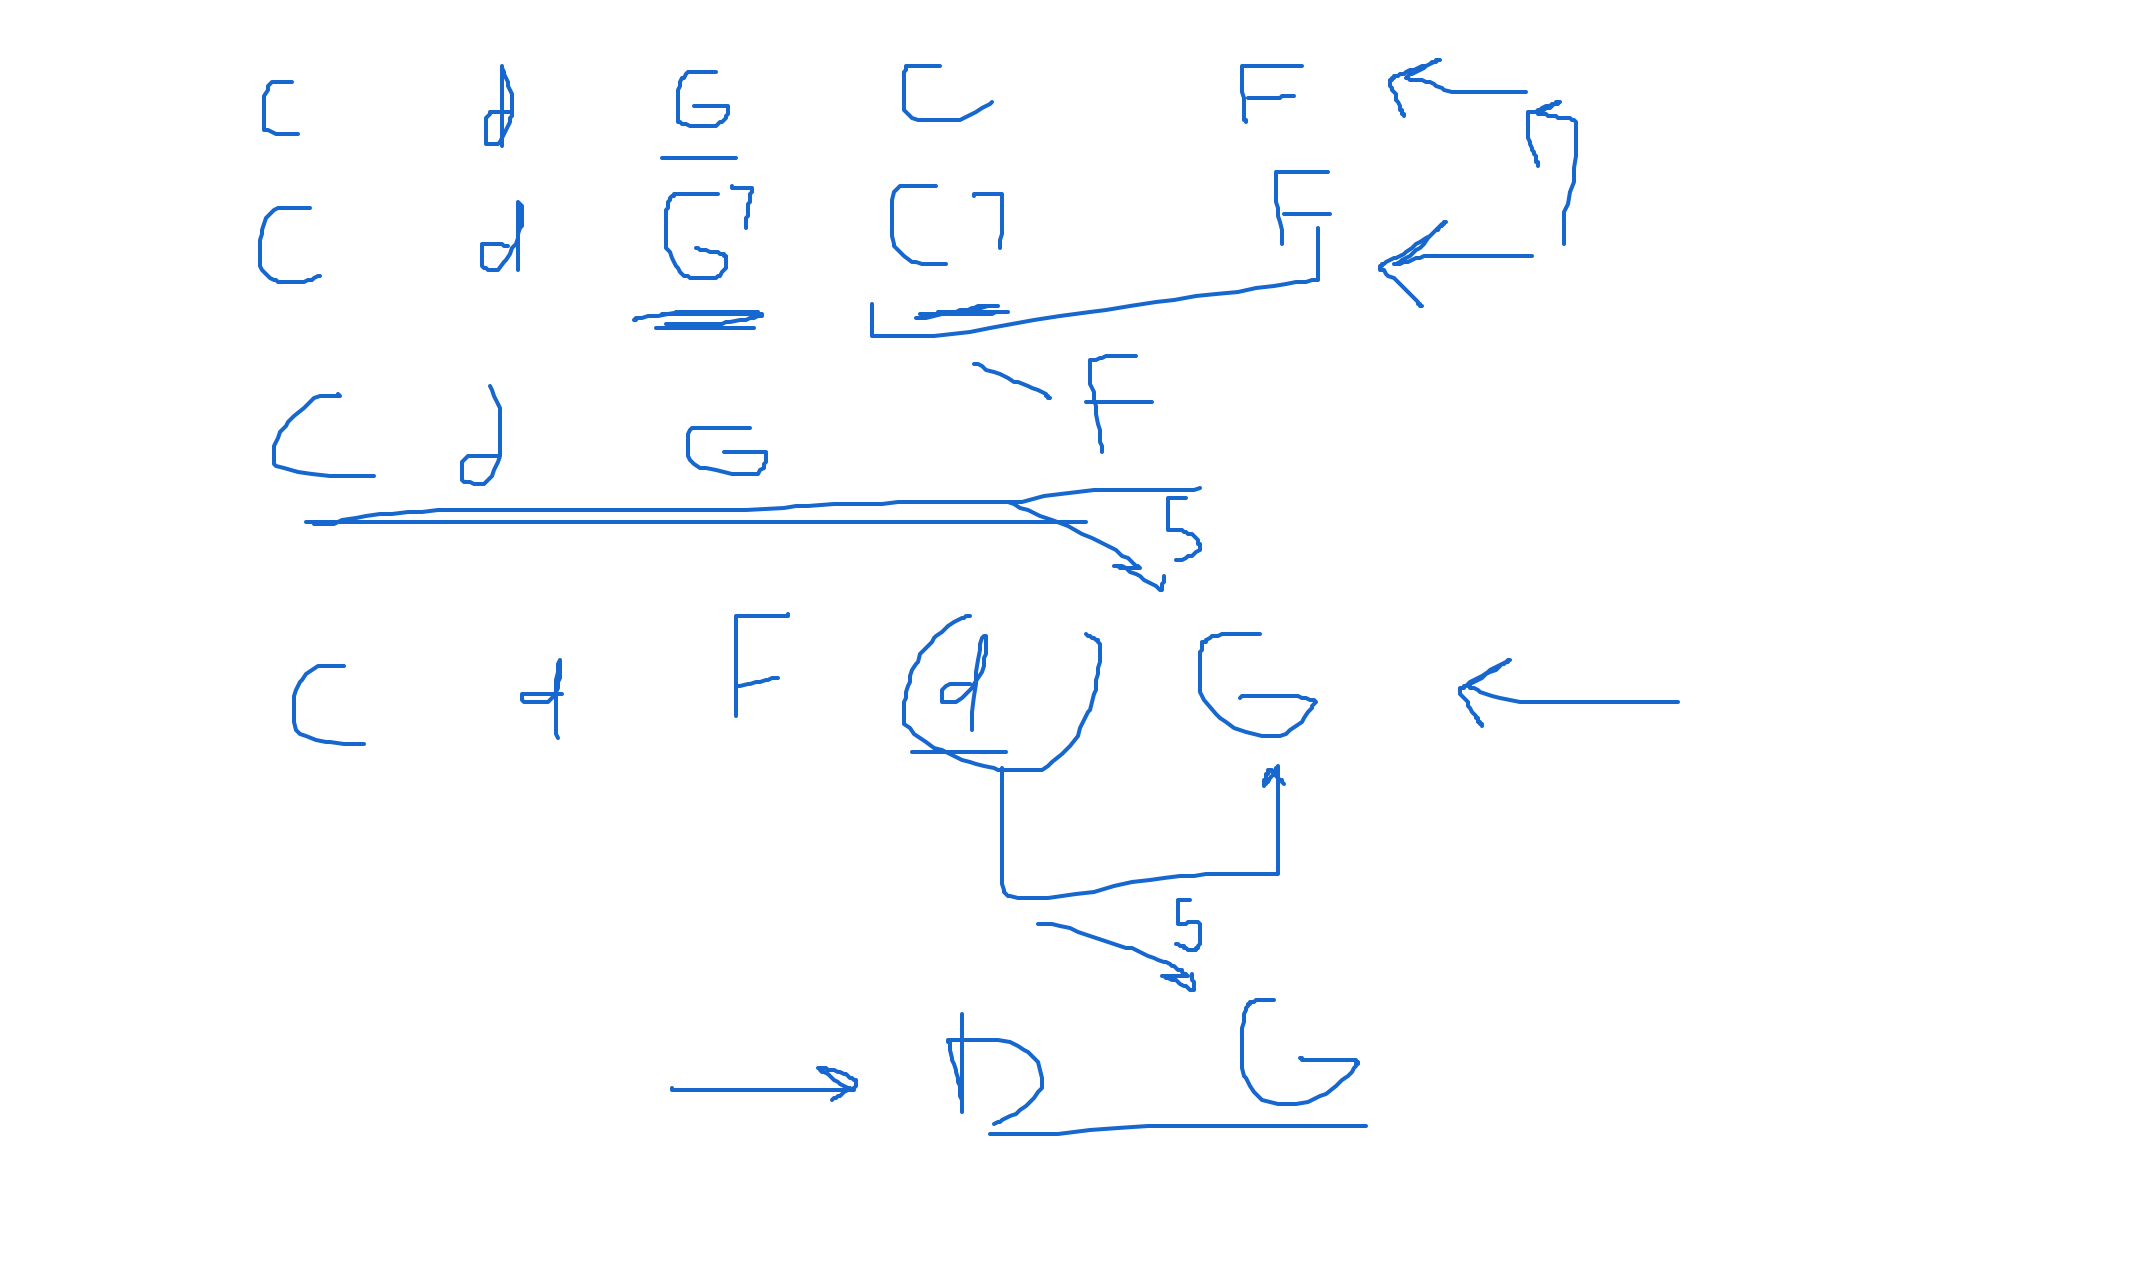 C d G C F
C d G7 C7 F
C d G F
5
C d F d G
5
D G